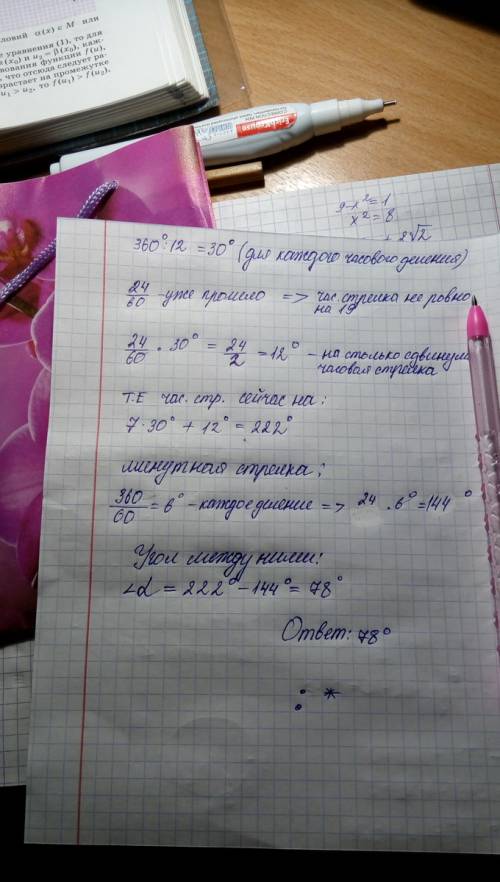 словий α(x) ∈ M или
уравнения (1), то для
(x₀) и u₂ = β(x₀), каж-
вования функции f(u).
, что отсюда следует ра-
зрастает на промежутке
u₁ > u₂, то f(u₁) > f(u₂),
CORRECTION PEN
ErichKrause
9-x²=1
x²=8
2√2
360°:12 = 30° (для каждого часового деления)
24/60 - уже прошло => час. стрелка не ровно
на 19
24/60 · 30° = 24/2 = 12° - на столько сдвинула
часовая стрелка
Т.Е час. стр. сейчас на:
7·30° + 12° = 222°
минутная стрелка:
360/60 = 6° - каждое деление => 24 · 6° = 144°
Угол между ними:
∠α = 222° - 144° = 78°
Ответ: 78°
: *